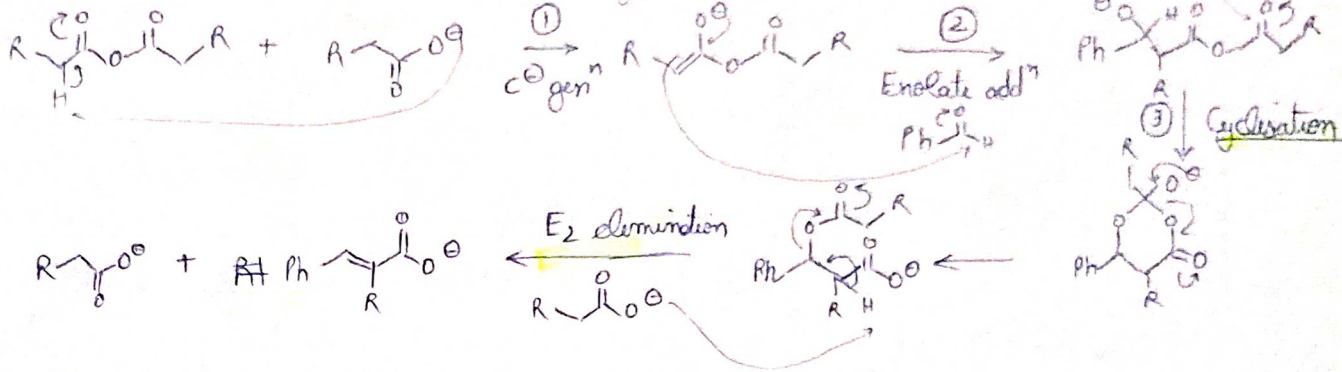 R O O R + R O O⊖ ① C⊖ genⁿ R O⊖ O O R ② Enolate addⁿ Ph O H
⊖ O H O O O R Ph R
H
③ Cyclisation
R O⊖ O O O Ph R
R O⊖ O + Ph O O⊖ R
E₂ elimination
R O O⊖
O R O Ph O O⊖ R H